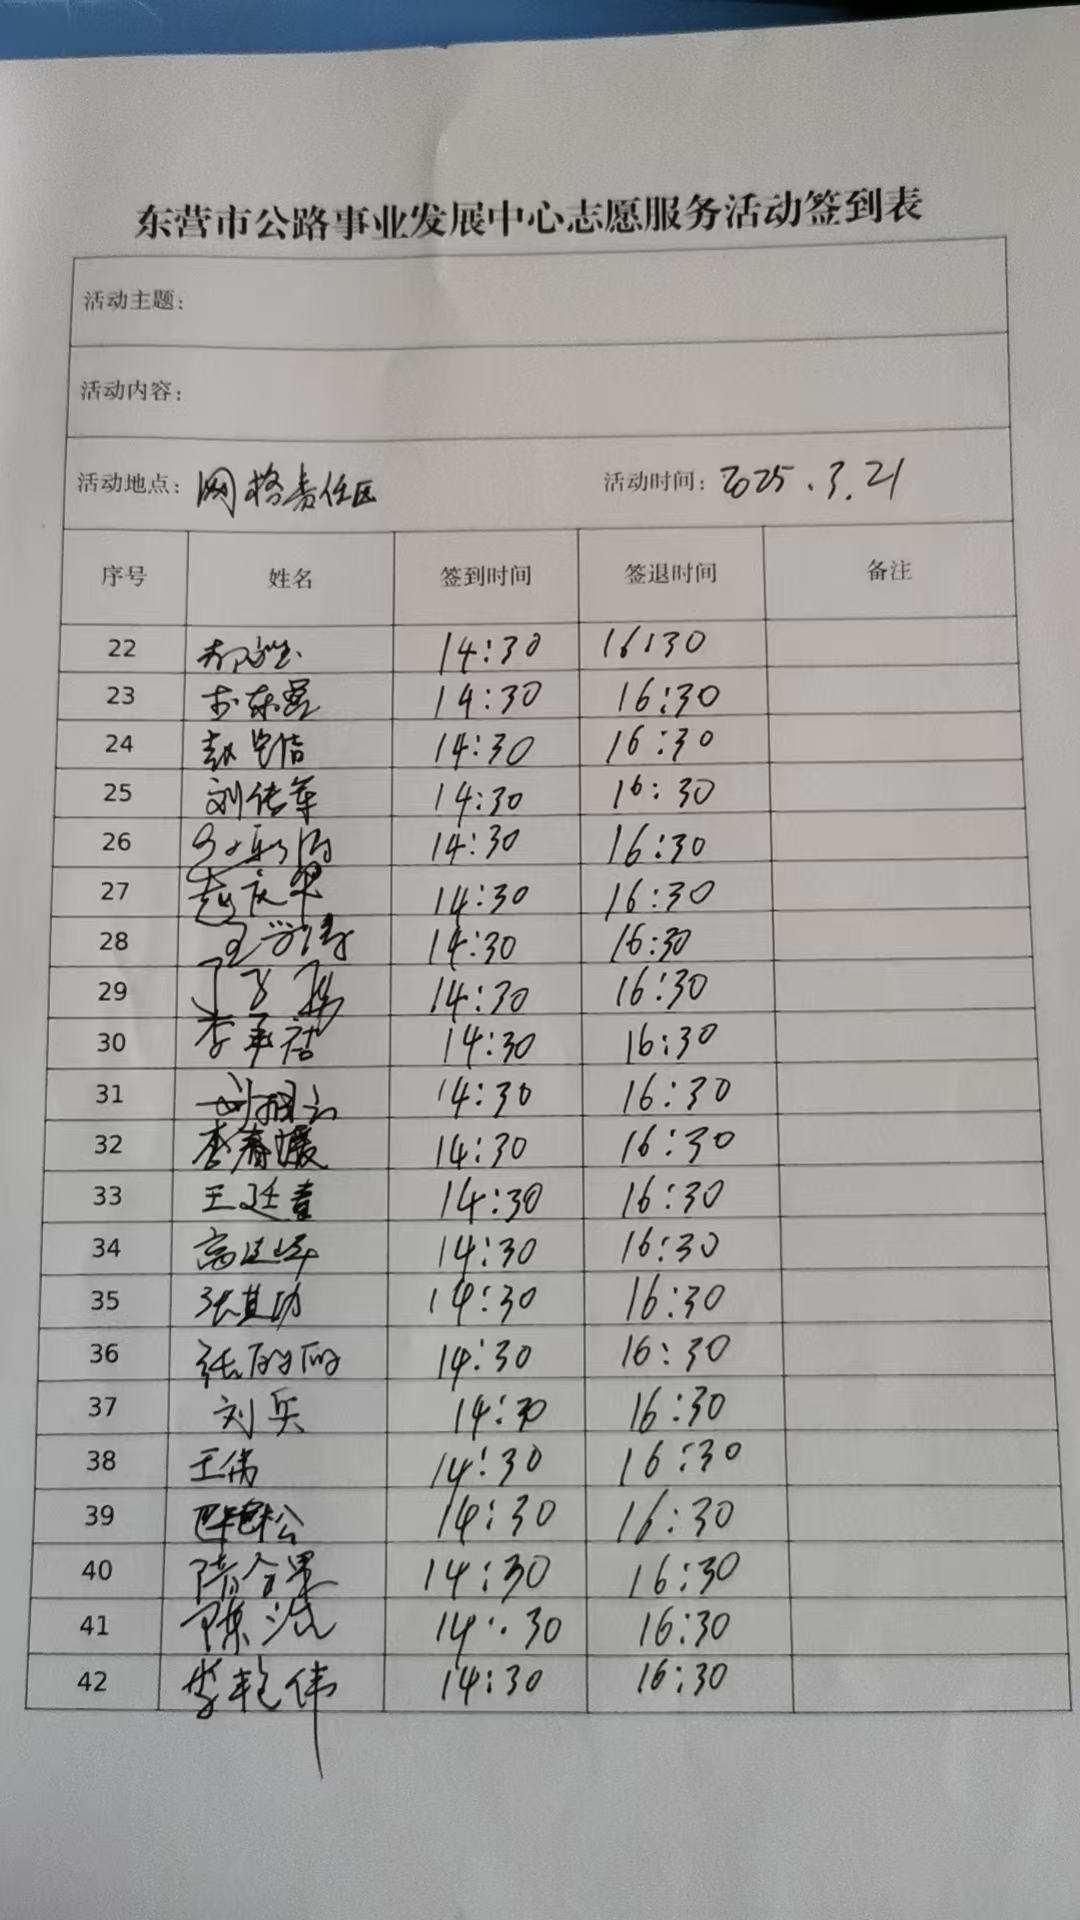 东营市公路事业发展中心志愿服务活动签到表
活动主题:
活动内容:
活动地点: 网格责任区 活动时间: 2025.3.21
序号 姓名 签到时间 签退时间 备注
22 14:30 16:30
23 14:30 16:30
24 14:30 16:30
25 刘传军 14:30 16:30
26 14:30 16:30
27 赵庆 14:30 16:30
28 14:30 16:30
29 14:30 16:30
30 李 14:30 16:30
31 14:30 16:30
32 李春媛 14:30 16:30
33 王廷 14:30 16:30
34 高 14:30 16:30
35 张其功 14:30 16:30
36 张丽丽 14:30 16:30
37 刘兵 14:30 16:30
38 王伟 14:30 16:30
39 14:30 16:30
40 14:30 16:30
41 陈 14:30 16:30
42 李艳伟 14:30 16:30